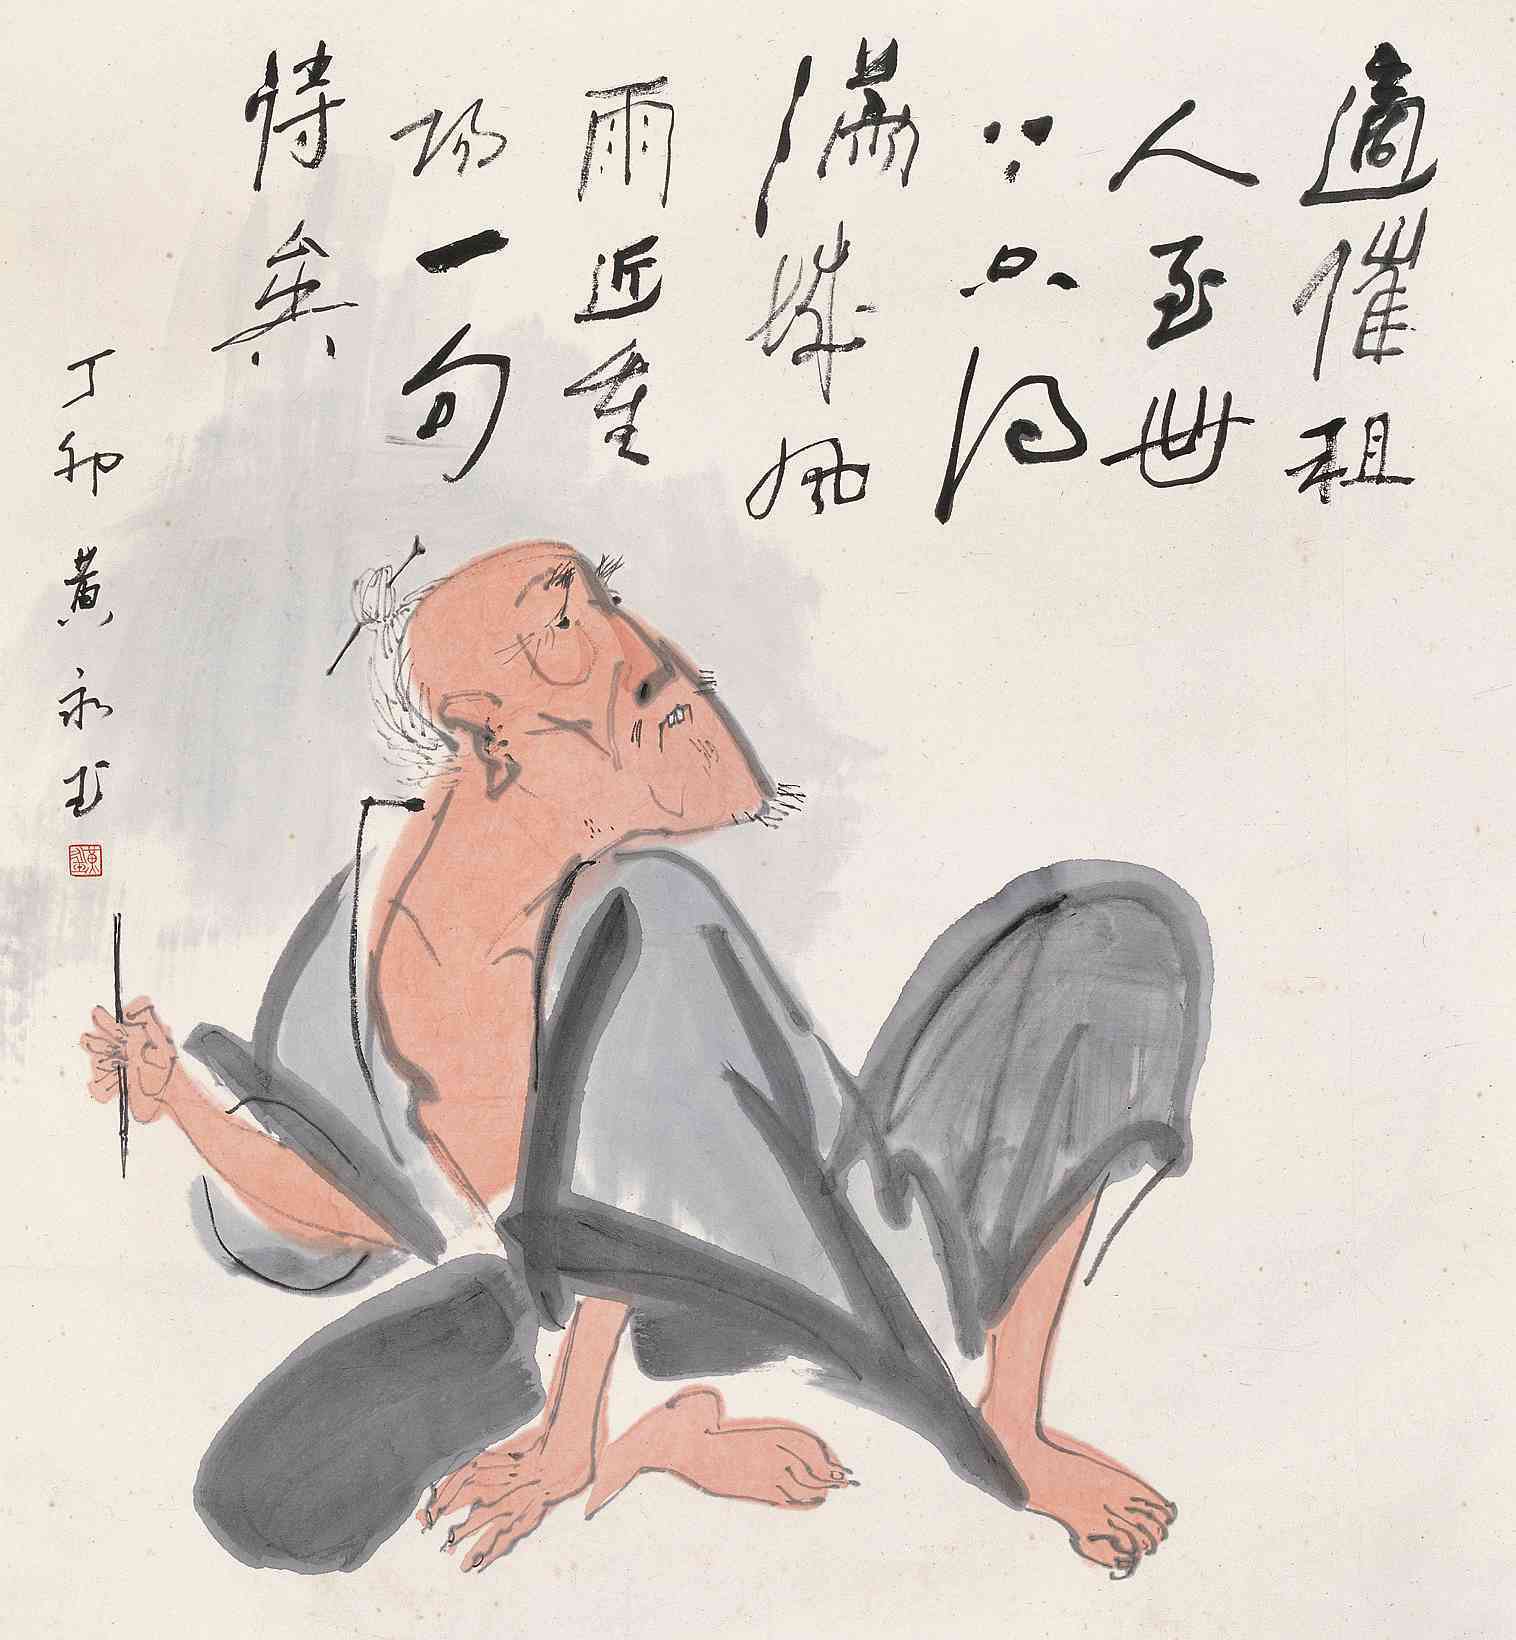 適催租
人至世
只得
滿城風
雨近重
陽一句
詩矣
丁卯 黃永玉